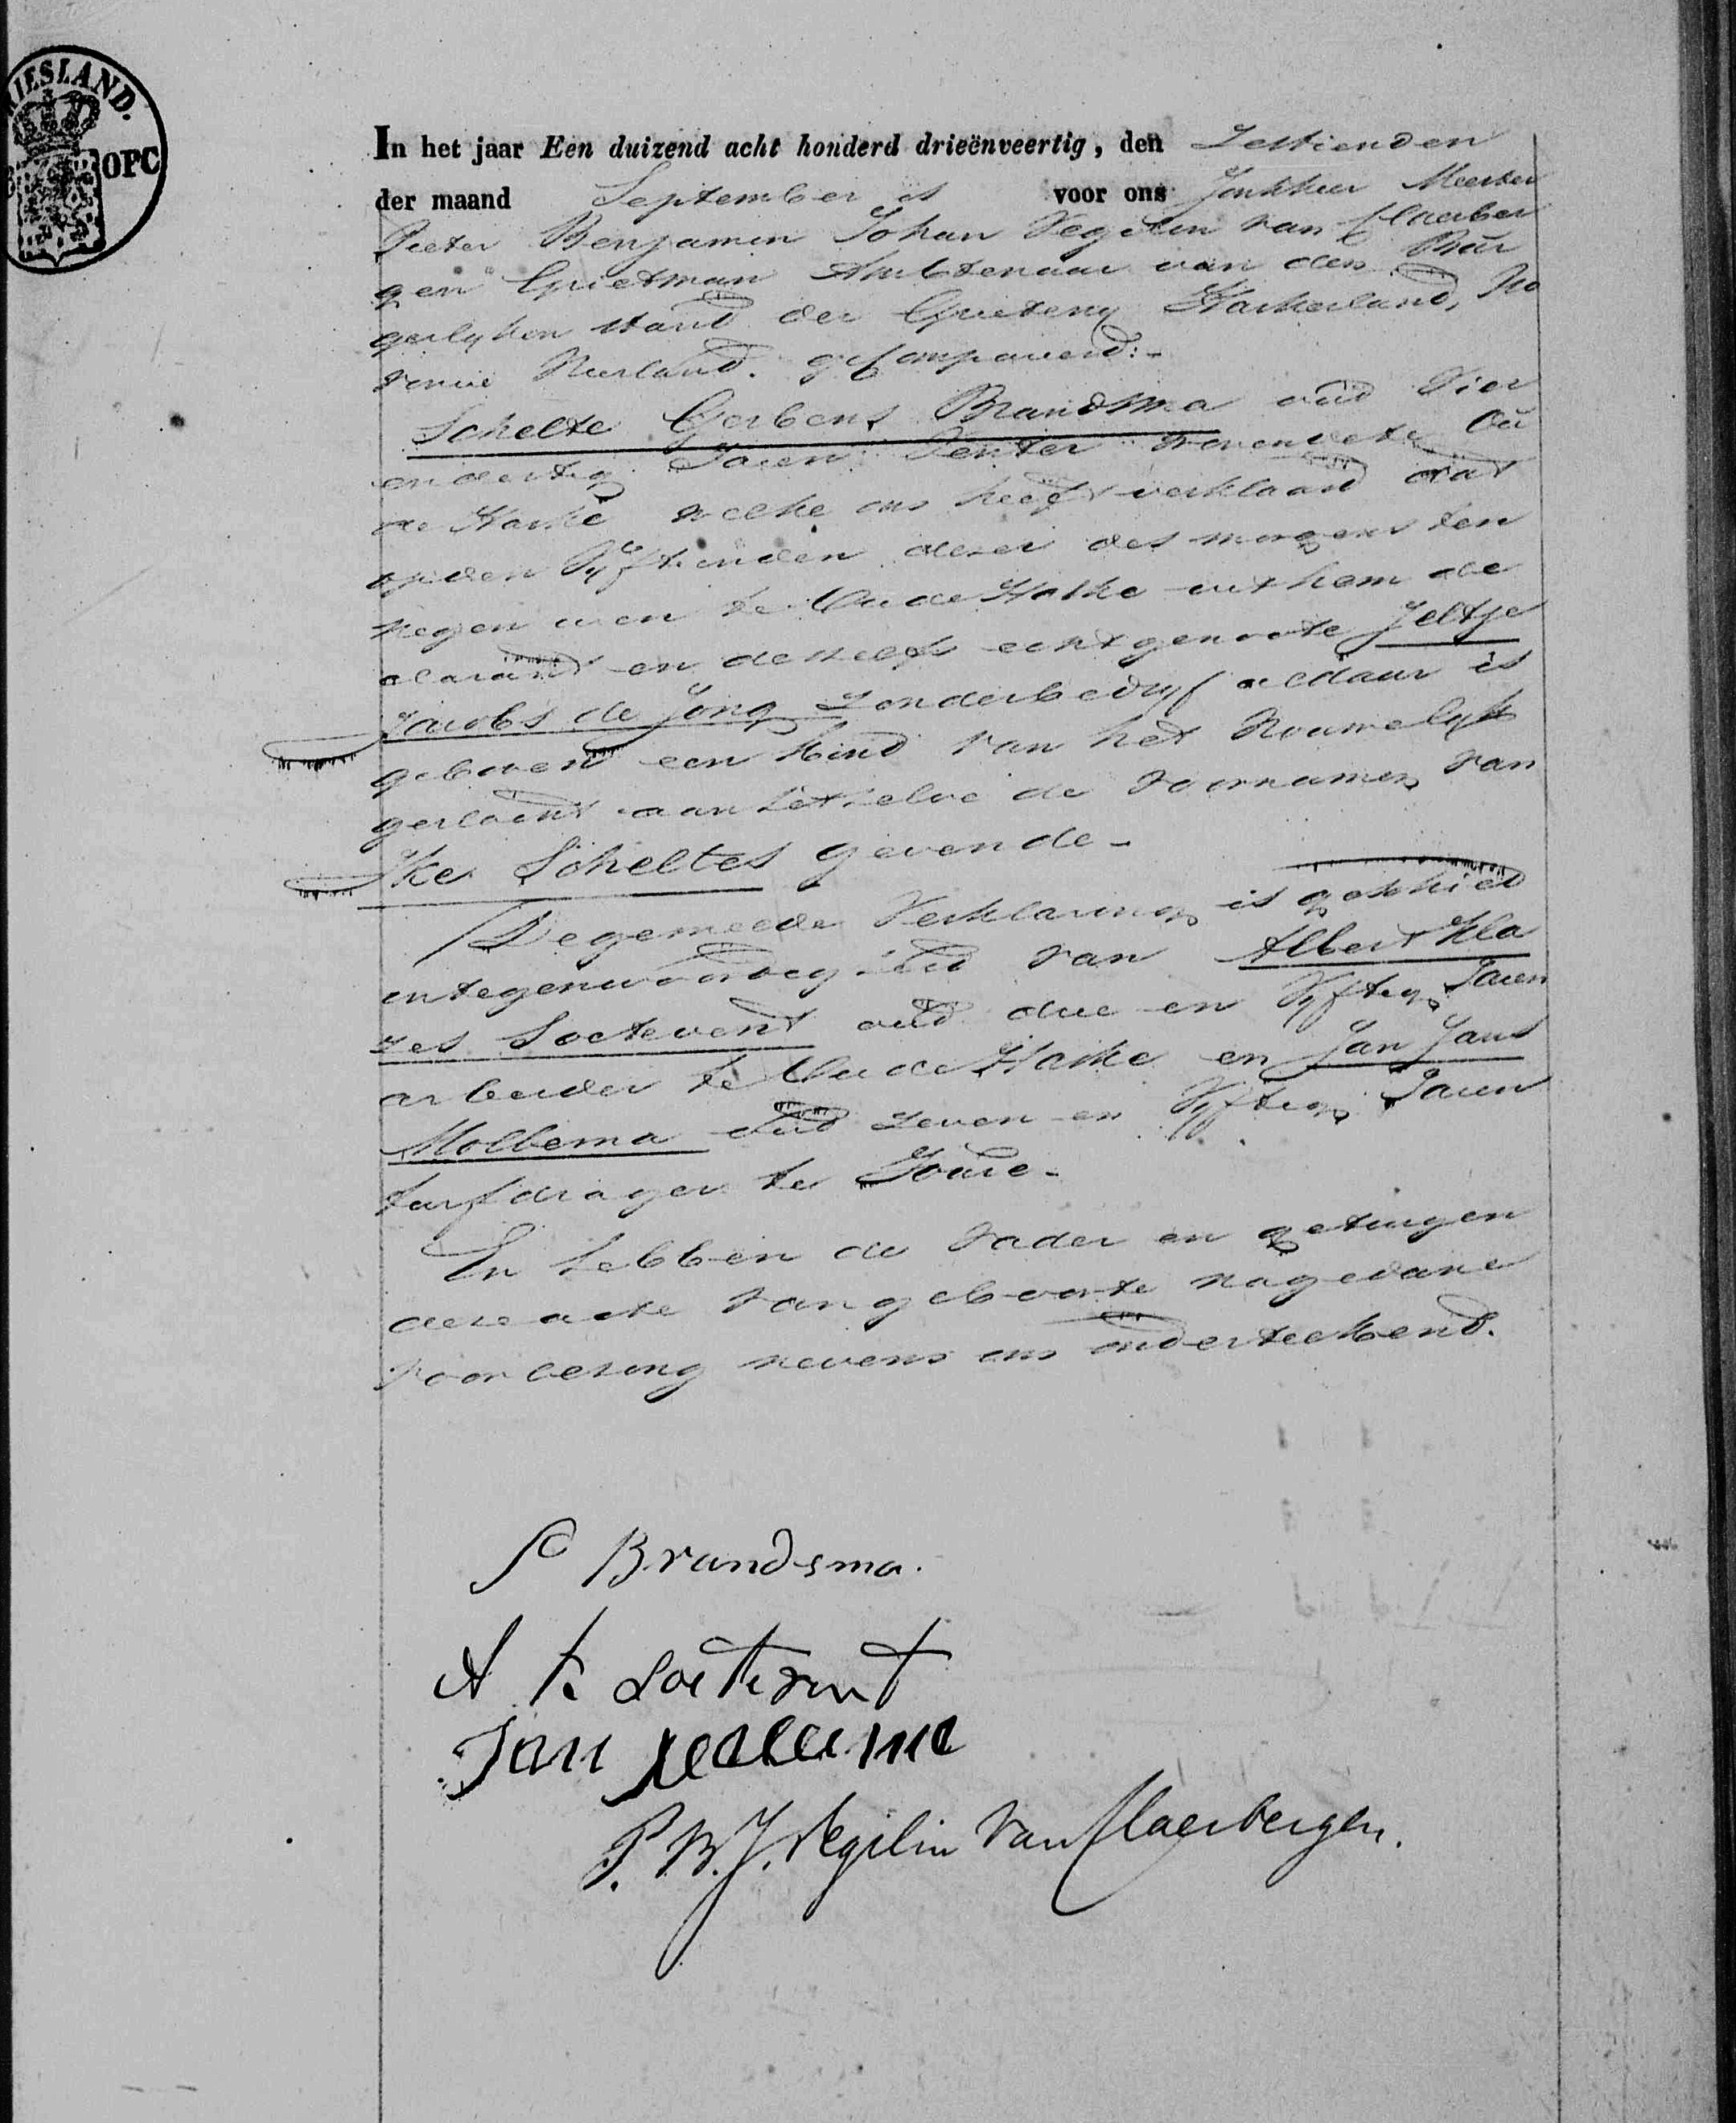 RIESLAND.
OPC
In het jaar Een duizend acht honderd drieënveertig, den Zestienden
der maand September is voor ons Jonkheer Meester
Pieter Benjamin Johan Vegelin van Claerber
gen Grietman Ambtenaar van den Bur
gerlyken stand der Grieteny Haskerland, Pro
vincie Vriesland. gecompareerd:-
Schelte Gerbens Brandsma oud Vier
en dertig Jaren Venter woonende te Ou
de Haske welke ons heeft verklaard dat
op den Vyftienden dezer des morgens ten
negen uren te Oude Haske uit hem de
clarant en deszelfs echtgenoote Jeltje
Jacobs de Jong zonder bedryf aldaar is
geboren een kind van het Vrouwelyk
geslacht aan hetzelve de voornamen van
Ike Scheltes gevende-
Degemeede Verklaring is geschied
in tegenwoordigheid van Albert Kla
zes Soetevent oud drie en Vyftig Jaren
arbeider te Oude Haske en Jan Jans
Mollema oud zeven en Vyftig Jaren
turfdrager te Joure-
En hebben de vader en getuigen
deze acte van geboorte na gedane
voorlezing nevens ons onderteekend.
S Brandsma.
A K Soetevent
Jan Mollema
P. B. J. Vegilin van Claerbergen.